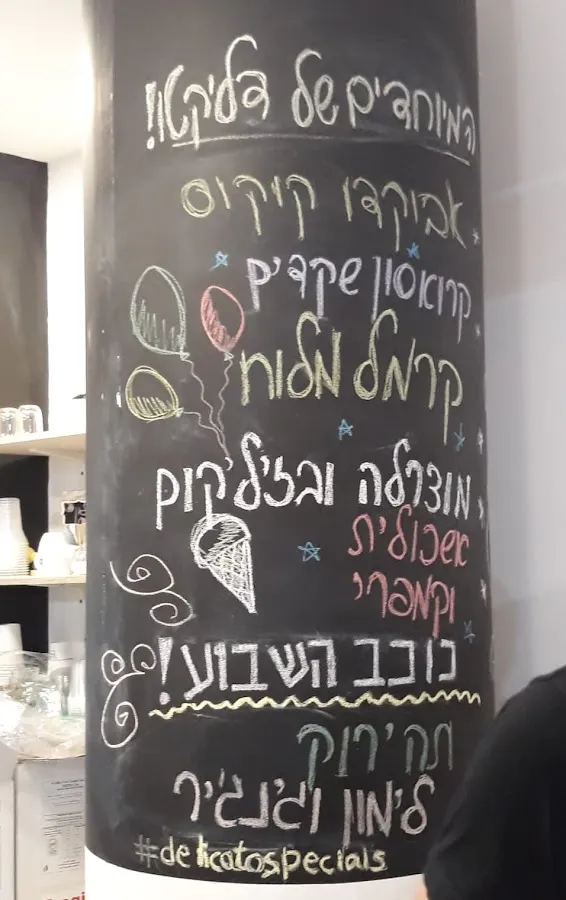 המיוחדים של דליקטו!
אבוקדו קוקוס
קרואסון שקדים
קרמל מלוח
מוצרלה ובזיליקום
אשכולית
וקמפרי
כוכב השבוע!
תה ירוק
לימון וג'ינג'ר
#delicatospecials